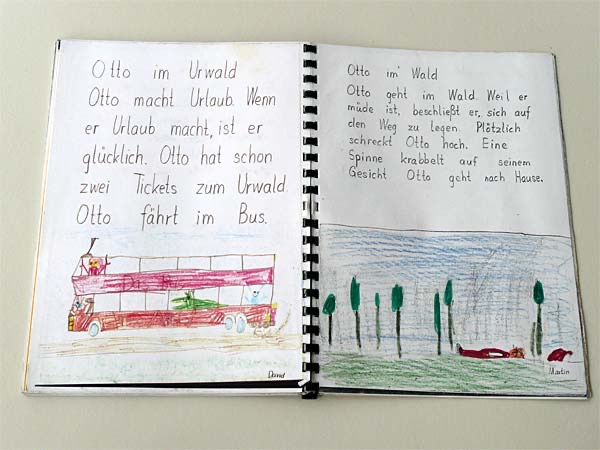 Otto im Urwald
Otto macht Urlaub. Wenn
er Urlaub macht, ist er
glücklich. Otto hat schon
zwei Tickets zum Urwald.
Otto fährt im Bus.
David
Otto im Wald
Otto geht im Wald. Weil er
müde ist, beschließt er, sich auf
den Weg zu legen. Plötzlich
schreckt Otto hoch. Eine
Spinne krabbelt auf seinem
Gesicht Otto geht nach Hause.
Martin